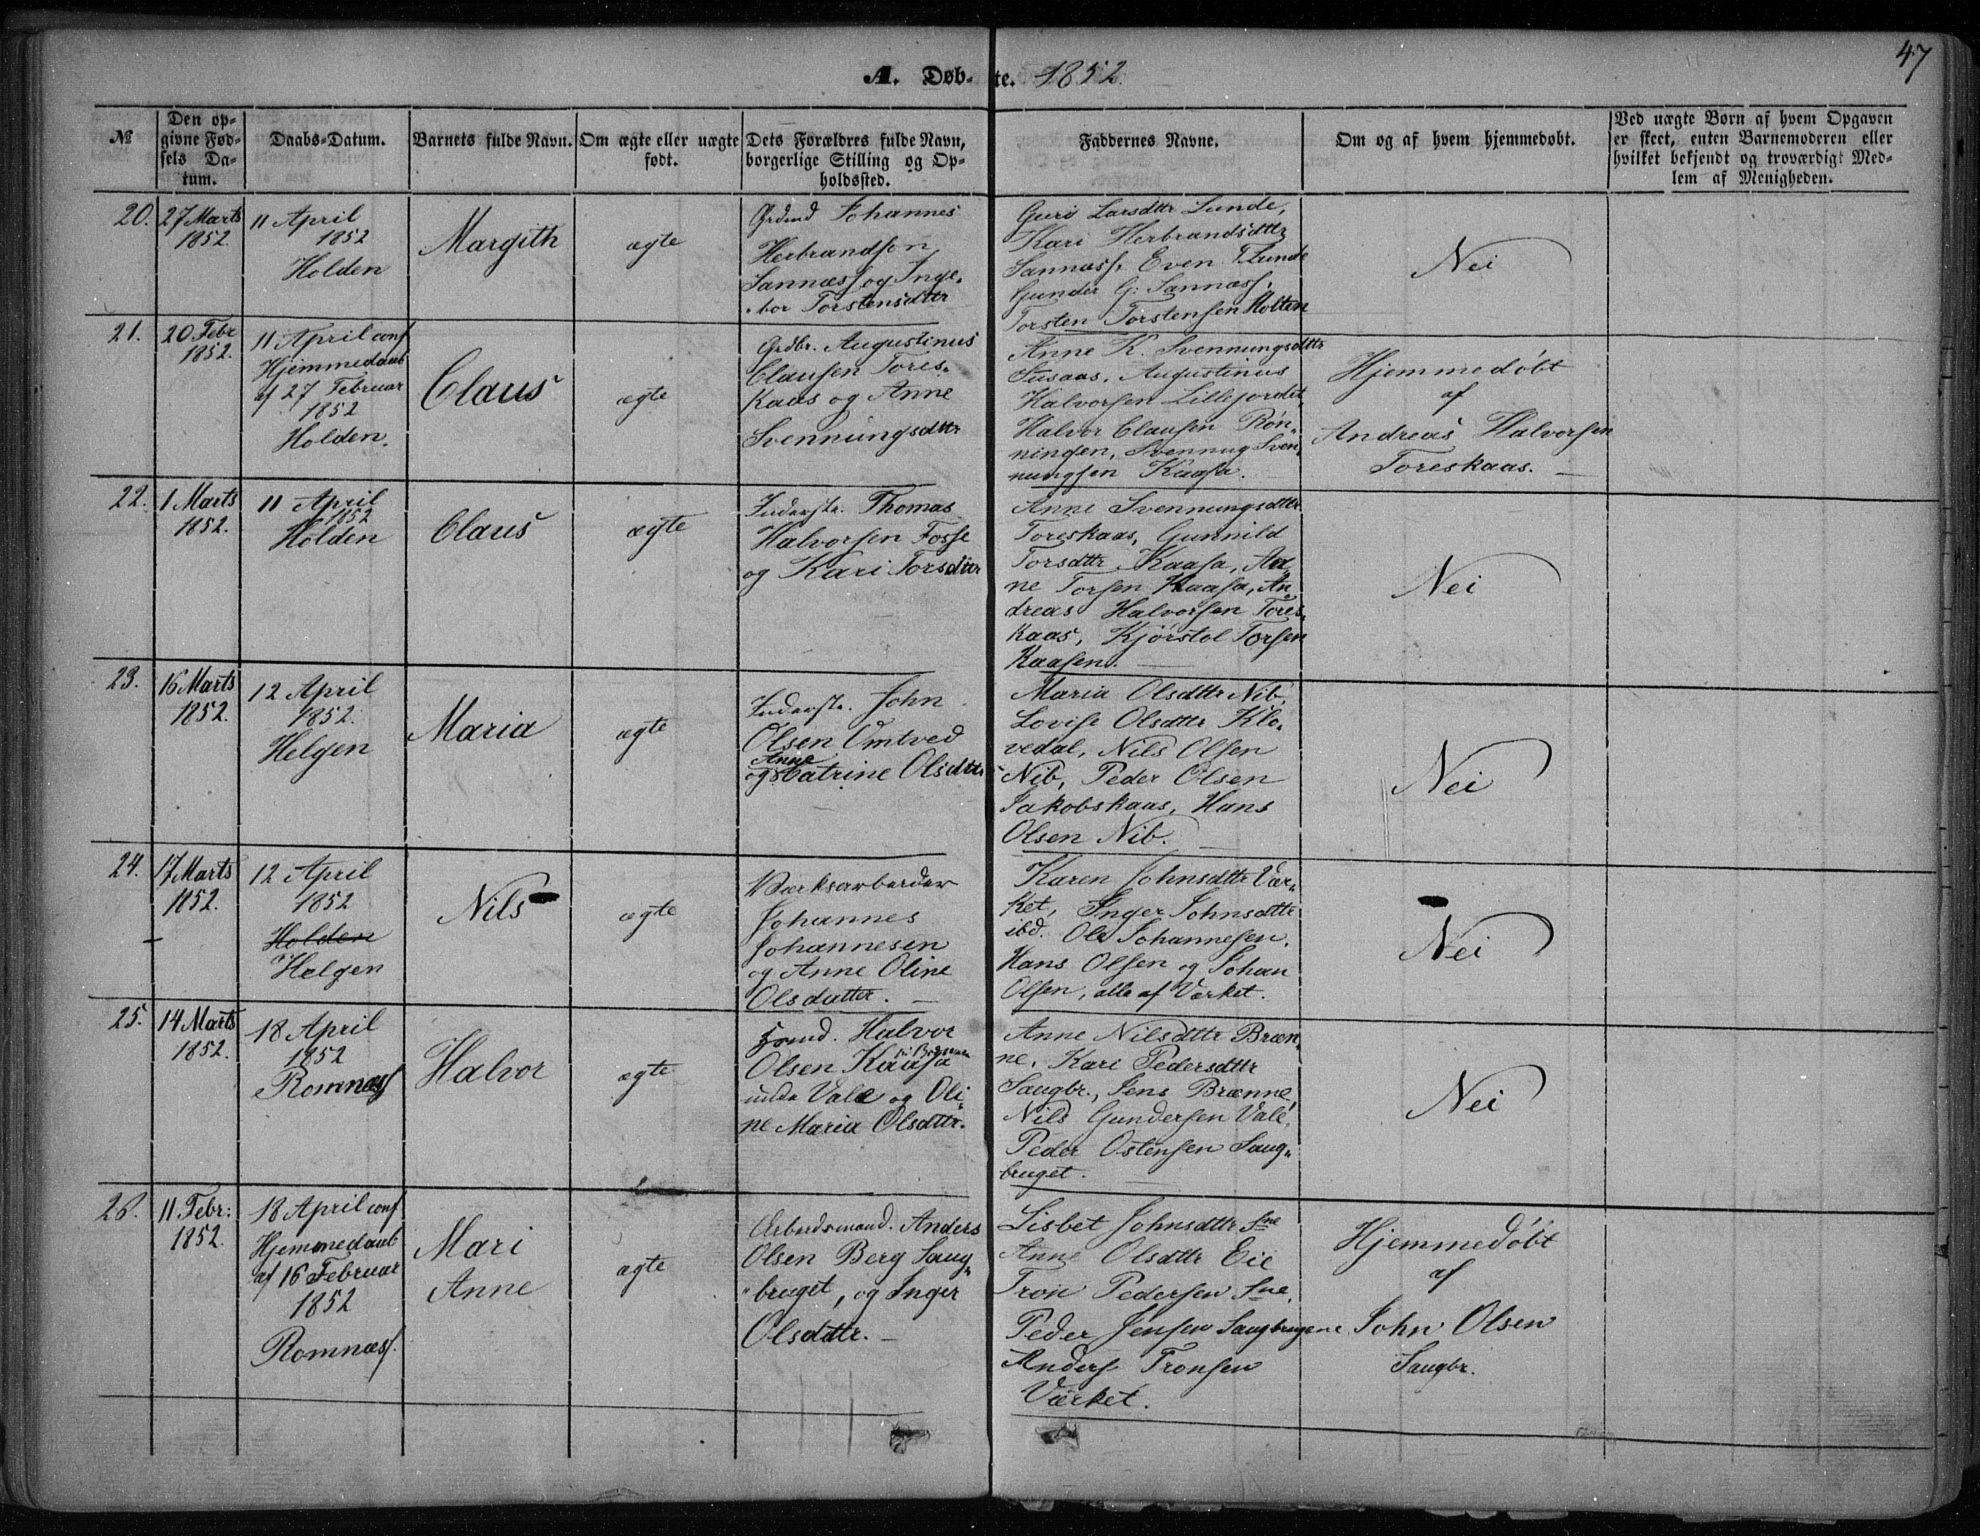 47
A. Døb- te. 1852.
№
Den op-
givne Fød-
sels Da-
tum.
Daabs-Datum.
Barnets fulde Navn.
Om ægte eller uægte
født.
Dets Forældres fulde Navn,
borgerlige Stilling og Op-
holdssted.
Faddernes Navne.
Om og af hvem hjemmedøbt.
Ved uægte Børn af hvem Opgaven
er skeet, enten Barnemoderen eller
hvilket bekjendt og troværdigt Med-
lem af Menigheden.
20.
27 Marts
1852.
11 April
1852
Holden
Margith
ægte
Grdmd Johannes
Herbrandsen
Sannæss og Inge-
bor Torstensdttr
Guri Larsdttr Lunde,
Kari Herbrandsdttr
Sannæss, Even T. Lunde
Gunder G: Sannæss,
Torsten Torstensen Holten
Nei
21.
20 Febr
1852.
11 April conf
Hjemmedaab
af 27 Februar
1852
Holden.
Claus
ægte
Grdbr. Augustinus
Clausen Tores-
kaas og Anne
Svennungsdttr
Anne K. Svennungsdttr
Tusaas, Augustinus
Halvorsen Lillejordet,
Halvor Clausen Røn-
ningen, Svennug Sven-
nungsen Kaasa.
Hjemmedøbt
af
Andreas Halvorsen
Toreskaas.
22.
1 Marts
1852.
11 April
1852
Holden
Claus
ægte
Inderste. Thomas
Halvorsen Fosse
og Kari Torsdttr
Anne Svennungsdttr
Toreskaas, Gunnild
Torsdttr Kaasa, An-
ne Torsen Kaasa, An-
dreas Halvorsen Tores-
kaas, Kjørstol Torsen
Kaasen.
Nei
23.
16 Marts
1852.
12 April
1852.
Helgen
Maria
ægte
Inderste. John
Olsen Omtved
Anne
og Catrine Olsdttr
Maria Olsdttr Nib,
Lovise Olsdttr Klo-
vedal, Nils Olsen
Nib, Peder Olsen
Jakobskaas, Hans
Olsen Nib.
Nei
24.
17 Marts
1852.
12 April
1852
Holden
Helgen
Nils
ægte
Værksarbeider
Johannes
Johannesen
og Anne Oline
Olsdatter.
Karen Johnsdttr Vær-
ket, Inger Johnsdttr
ibd. Ole Johannesen,
Hans Olsen og Johan
Olsen, alle af Værket.
Nei
25.
14 Marts
1852.
18 April
1852
Romnæss
Halvor
ægte
Halvor
Olsen Kaasa
under Vale og Oli-
ne Maria Olsdttr.
Anne Nilsdttr Bræn-
ne, Kari Pedersdttr
Saugbr., Jens Brænne,
Nils Gundersen Vale,
Peder Ostensen Saug-
bruget.
Nei
26.
11 Febr:
1852.
18 April conf
Hjemmedaab
af 16 Februar
1852
Romnæss.
Mari
Anne
ægte
Arbeidsmand. Anders
Olsen Berg Saug-
bruget, og Inger
Olsdttr.
Lisbet Johnsdttr Sne
Anne Olsdttr Eie
Tron Pedersen Sne,
Peder Jensen Saugbrugene
Anders Tronsen
Værket.
Hjemmedøbt
af
John Olsen
Saugbr.